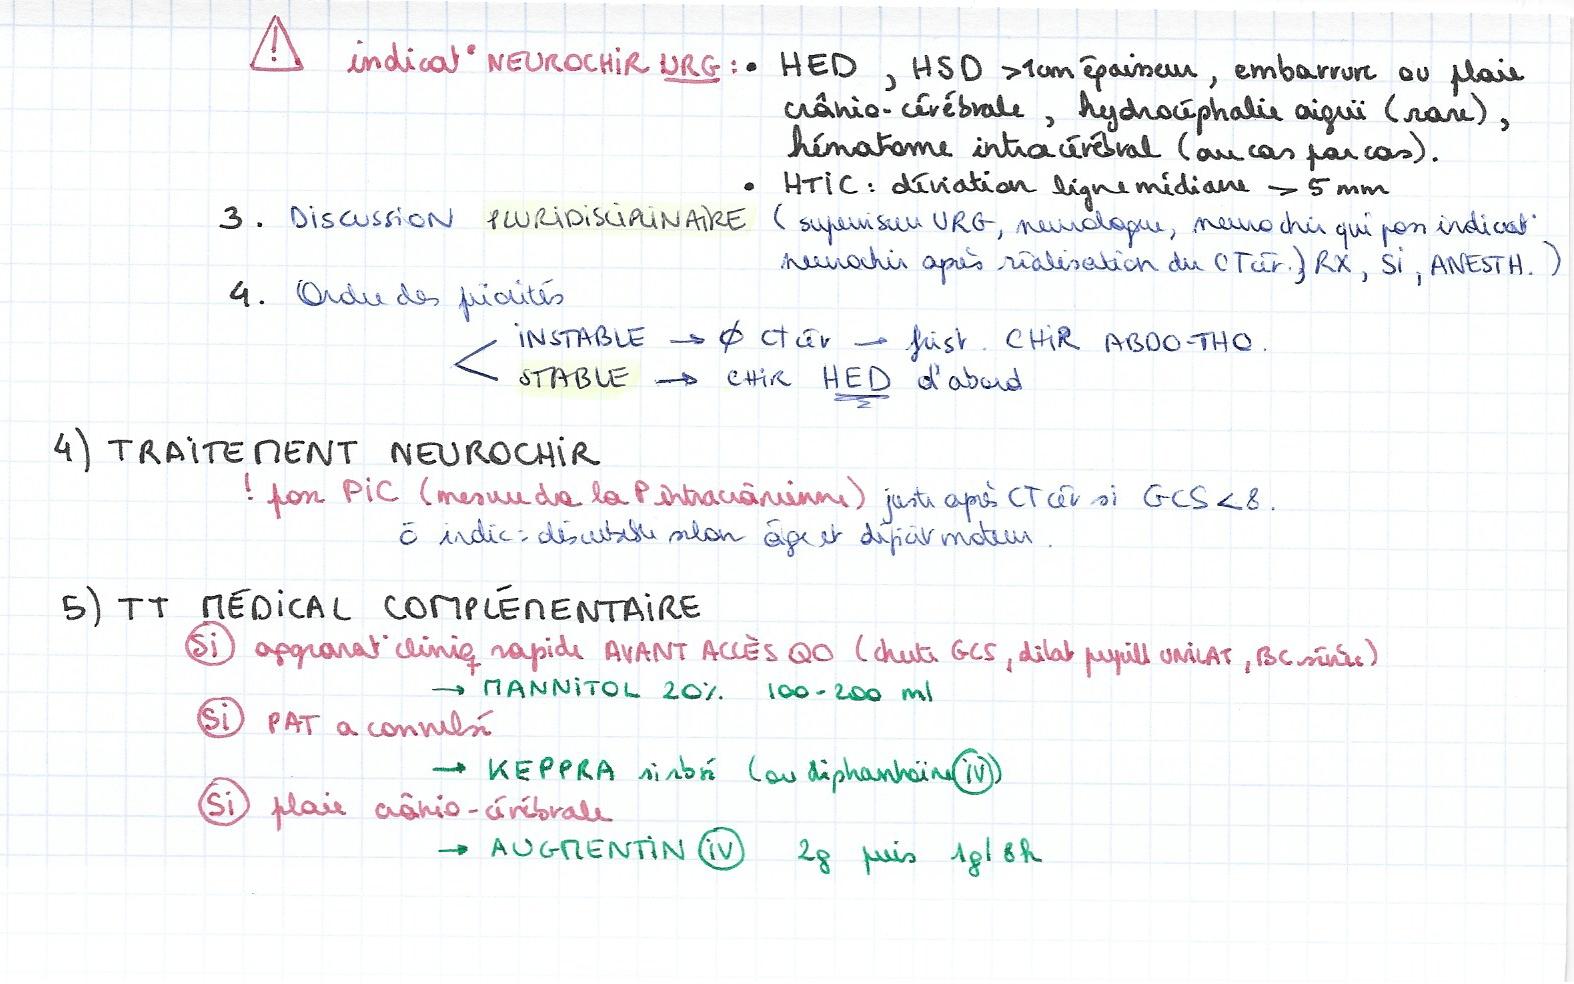 indicat° NEUROCHIR URG : • HED, HSD >1cm épaisseur, embarrure ou plaie
crânio-cérébrale, hydrocéphalie aiguë (rare),
hématome intracérébral (au cas par cas).
• HTIC : déviation ligne médiane > 5 mm
3. DISCUSSION PLURIDISCIPLINAIRE (superviseur URG, neurologue, neurochir qui pose indicat°
neurochir après réalisation du CTcér.} RX, Si, ANESTH.)
4. Ordre des priorités
INSTABLE → Ø CT cér → first CHIR ABDO-THO.
STABLE → CHIR HED d'abord
4) TRAITEMENT NEUROCHIR
! pose PIC (mesure de la P intracrânienne) juste après CT cér si GCS < 8.
ō indic : discutable selon âge et déficit moteur.
5) TT MÉDICAL COMPLÉMENTAIRE
Si aggravat° cliniq rapide AVANT ACCÈS QO (chute GCS, dilat pupill UNILAT, BC sévère)
→ MANNITOL 20% 100-200 ml
Si PAT a convulsé
→ KEPPRA (ou diphantoïne IV)
Si plaie crânio-cérébrale
→ AUGMENTIN IV 2g puis 1g/8h